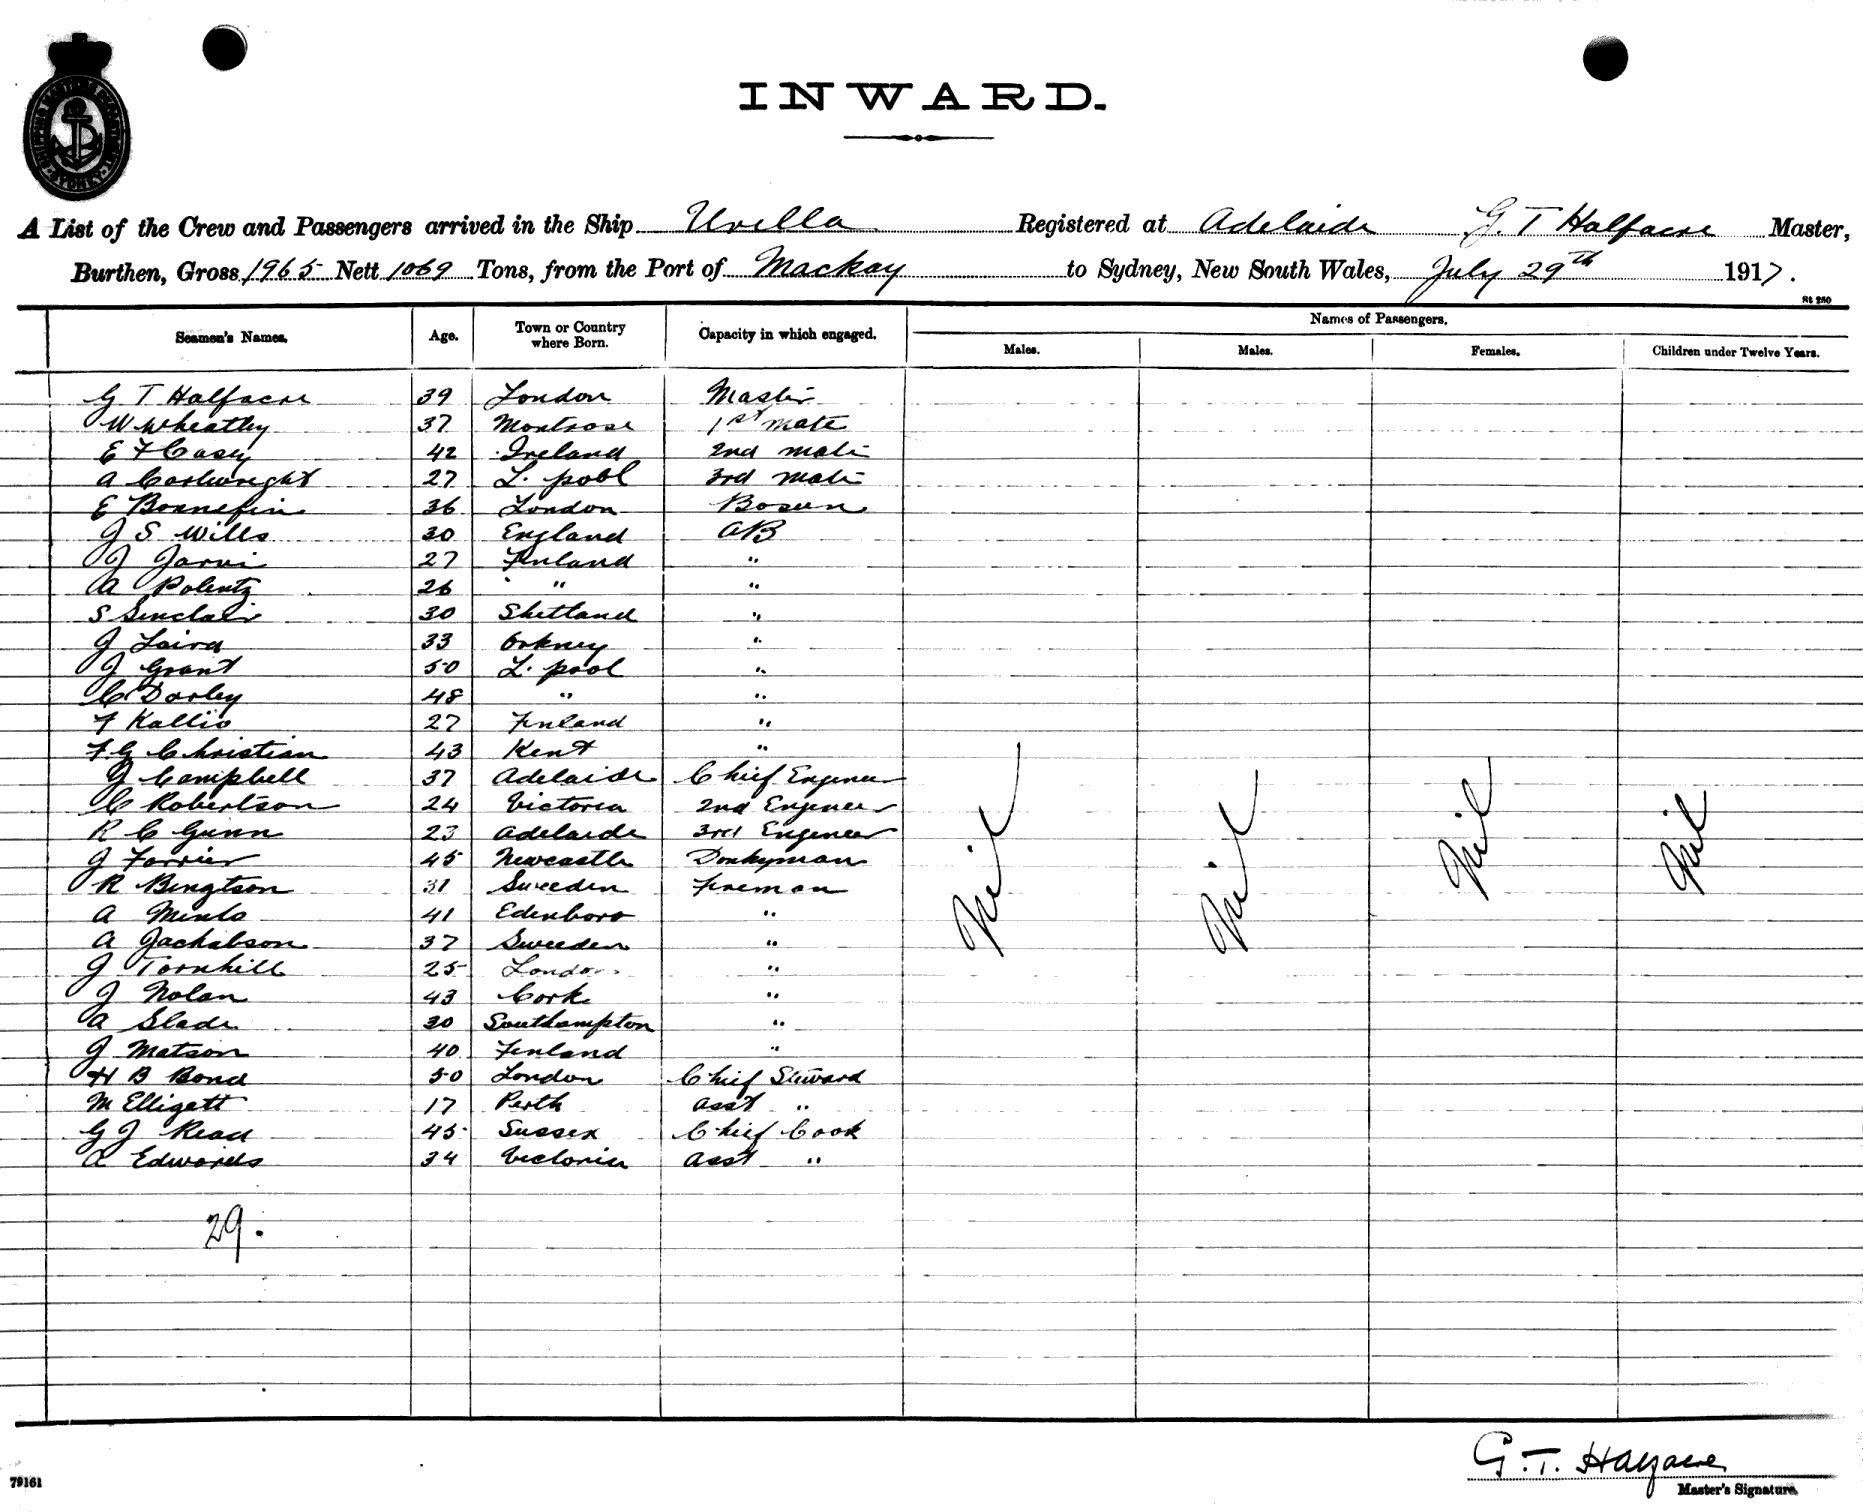 SHIPPING MASTER'S DEPARTMENT SYDNEY
INWARD.
A List of the Crew and Passengers arrived in the Ship Urilla Registered at Adelaide G. T Halfacre Master,
Burthen, Gross 1965 Nett 1069 Tons, from the Port of Mackay to Sydney, New South Wales, July 29th 1917.
St 250
Seamen's Names. Age. Town or Country where Born. Capacity in which engaged. Names of Passengers.
Males. Males. Females. Children under Twelve Years.
G T Halfacre 39 London Master
W Wheatley 37 Montrose 1st mate
E F Casey 42 Ireland 2nd mate
A Cartwright 27 L. pool 3rd mate
E Bonnefin 36 London Bosun
J S Wills 30 England AB
J Jarvi 27 Finland "
A Polentz 26 " "
S Sinclair 30 Shetland "
J Laird 33 Orkney "
J Grant 50 L. pool "
C Darley 48 " "
F Kallio 27 Finland "
F. G Christian 43 Kent "
J Campbell 37 Adelaide Chief Engineer
C Robertson 24 Victoria 2nd Engineer
R C Gunn 23 Adelaide 3rd Engineer
J Farrier 45 Newcastle Donkyman
R Bengtson 31 Sweeden Fireman
A Minto 41 Edenboro "
A Jachabson 37 Sweeden "
J Tornhill 25 London "
J Nolan 43 Cork "
A Slade 30 Southampton "
J Matson 40 Finland "
H B Bond 50 London Chief Steward
M Elligett 17 Perth Asst "
G J Read 45 Sussex Chief Cook
A Edwards 34 Victoria Asst "
Nil Nil Nil Nil
29.
G. T. Halfacre
Master's Signature.
79161